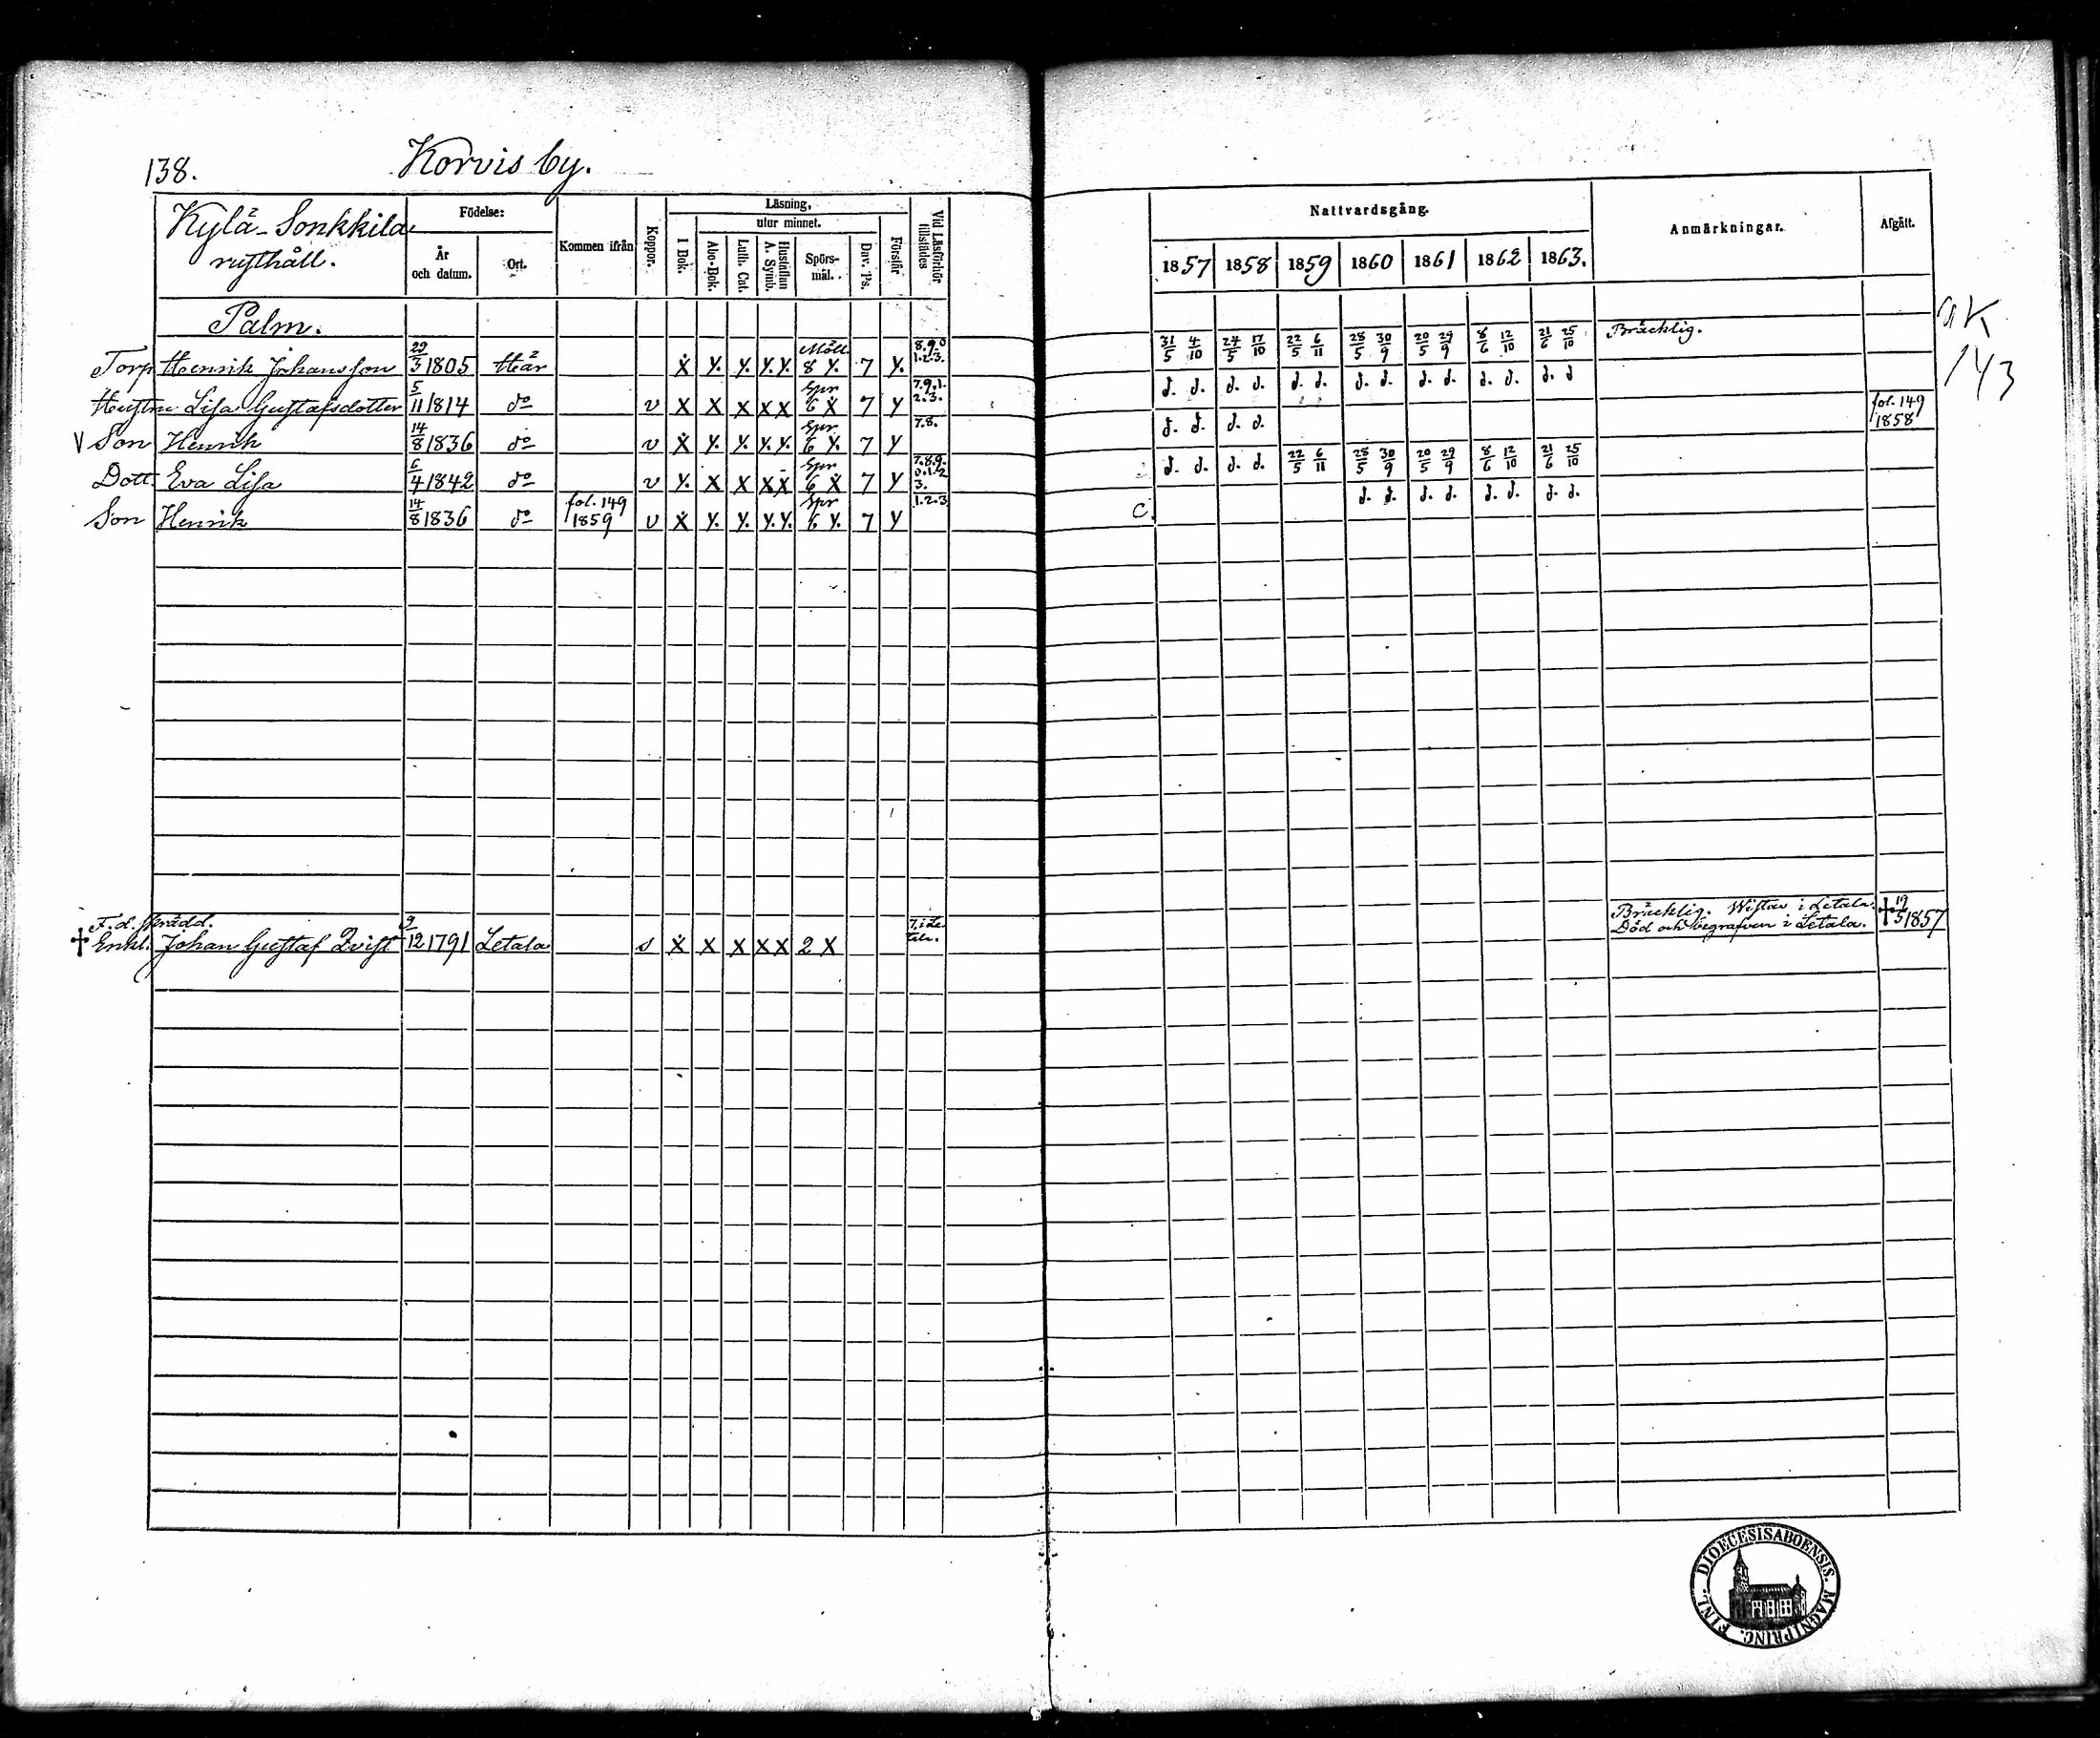 138. Korvis by.
Kylä-Sonkkila
rusthåll.
Födelse:
År
och datum.
Ort.
Kommen ifrån
Koppor.
Läsning,
I Bok.
utur minnet.
Abc-Bok.
Luth. Cat.
Hustaflan
A. Symb.
Spörs-
mål.
Dav. Ps.
Förstår
Vid Läsförhör
tillstädes
Nattvardsgång.
1857 1858 1859 1860 1861 1862 1863.
Anmärkningar.
Afgått.
Palm.
Torp Henrik Johansson 29/3 1805 Här X Y. Y. Y. Y. Möll. 8 Y. 7 Y. 8.9.0 1.2.3. 31/5 4/10 24/5 17/10 22/5 6/11 28/5 30/9 20/5 29/9 8/6 12/10 21/6 25/10 Bräcklig.
AK
143
Hustru Lisa Gustafsdotter 5/11 1814 do v X X X X X Spr 6 X 7 Y 7.9.1. 2.3. d. d. d. d. d. d. d. d. d. d. d. d. d. d
V Son Henrik 14/8 1836 do v X Y. Y. Y. Y. Spr. 6 Y. 7 Y 7.8. d. d. d. d. fol. 149 1858
Dott. Eva Lisa 6/4 1842 do v Y. X X X X Spr 6 X 7 Y 7.8.9. 0.1.2 3. d. d. d. d. 22/5 6/11 28/5 30/9 20/5 29/9 8/6 12/10 21/6 25/10
Son Henrik 14/8 1836 do fol. 149 1859 v X Y. Y. Y. Y. Spr 6 Y. 7 Y 1.2.3 C. d. d. d. d. d. d. d. d.
F. d. skrädd.
† Enkl. Johan Gustaf Qvist 9/12 1791 Letala s X X X X X 2 X 7. i Le- tala. Bräcklig. Wistas i Letala. † 19/5 1857
Död och begrafven i Letala.
DIOECESIS ABOENSIS. MAGNI PRINC. FINL.